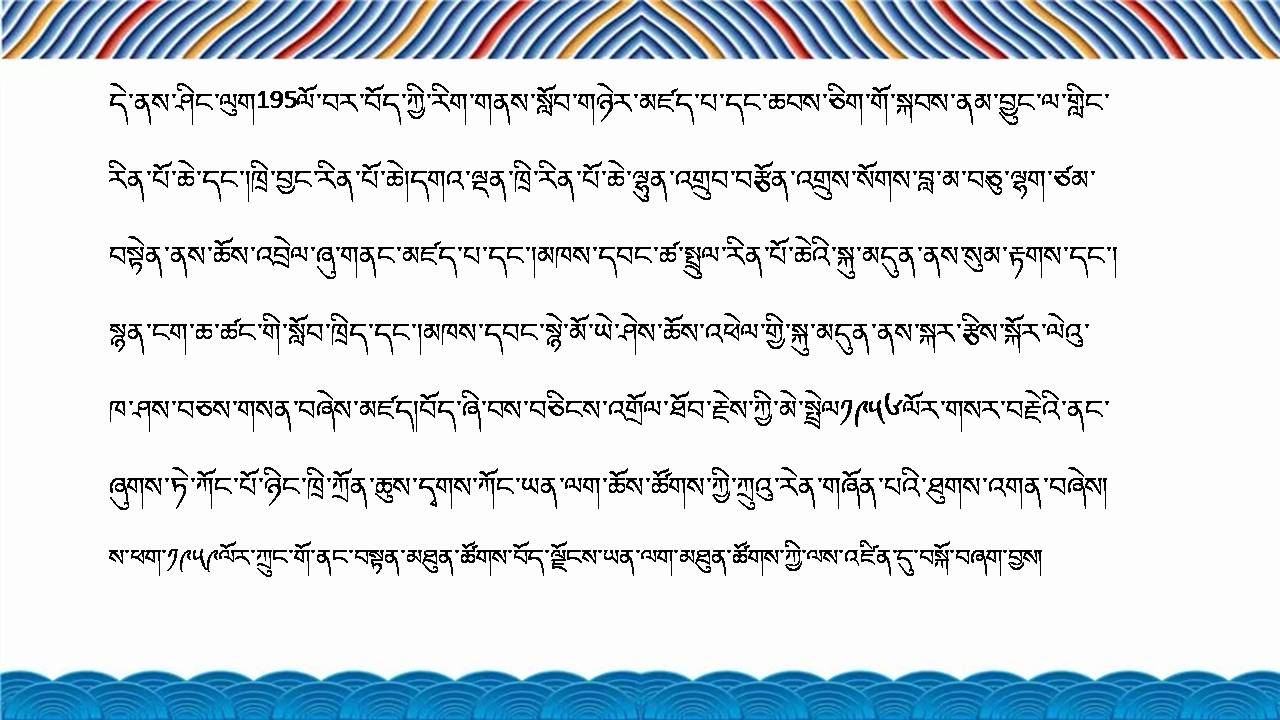 དེ་ནས་ཤིང་ལུག195ལོ་བར་བོད་ཀྱི་རིག་གནས་སློབ་གཉེར་མཛད་པ་དང་ཆབས་ཅིག་གོ་སྐབས་ནམ་བྱུང་ལ་གླིང་
རིན་པོ་ཆེ་དང་།ཁྲི་བྱང་རིན་པོ་ཆེ།དགའ་ལྡན་ཁྲི་རིན་པོ་ཆེ་ལྷུན་འགྲུབ་བརྩོན་འགྲུས་སོགས་བླ་མ་བཅུ་ལྷག་ཙམ་
བསྟེན་ནས་ཆོས་འབྲེལ་ཞུ་གནང་མཛད་པ་དང་།མཁས་དབང་ཚ་སྤྲུལ་རིན་པོ་ཆེའི་སྐུ་མདུན་ནས་སུམ་རྟགས་དང་།
སྙན་ངག་ཆ་ཚང་གི་སློབ་ཁྲིད་དང་།མཁས་དབང་སྙེ་མོ་ཡེ་ཤེས་ཆོས་འཕེལ་གྱི་སྐུ་མདུན་ནས་སྐར་རྩིས་སྐོར་ལེའུ་
ཁ་ཤས་བཅས་གསན་བཞེས་མཛད།བོད་ཞི་བས་བཅིངས་འགྲོལ་ཐོབ་རྗེས་ཀྱི་མེ་སྤྲེལ༡༩༥༦ལོར་གསར་བརྗེའི་ནང་
ཞུགས་ཏེ་ཀོང་པོ་ཉིང་ཁྲི་ཀྲོན་ཆུས་དྭགས་ཀོང་ཡན་ལག་ཆོས་ཚོགས་ཀྱི་ཀྲུའུ་རེན་གཞོན་པའི་ཐུགས་འགན་བཞེས།
ས་ཕག་༡༩༥༩ལོར་ཀྲུང་གོ་ནང་བསྟན་མཐུན་ཚོགས་བོད་ལྗོངས་ཡན་ལག་མཐུན་ཚོགས་ཀྱི་ལས་འཛིན་དུ་བསྐོ་བཞག་བྱས།